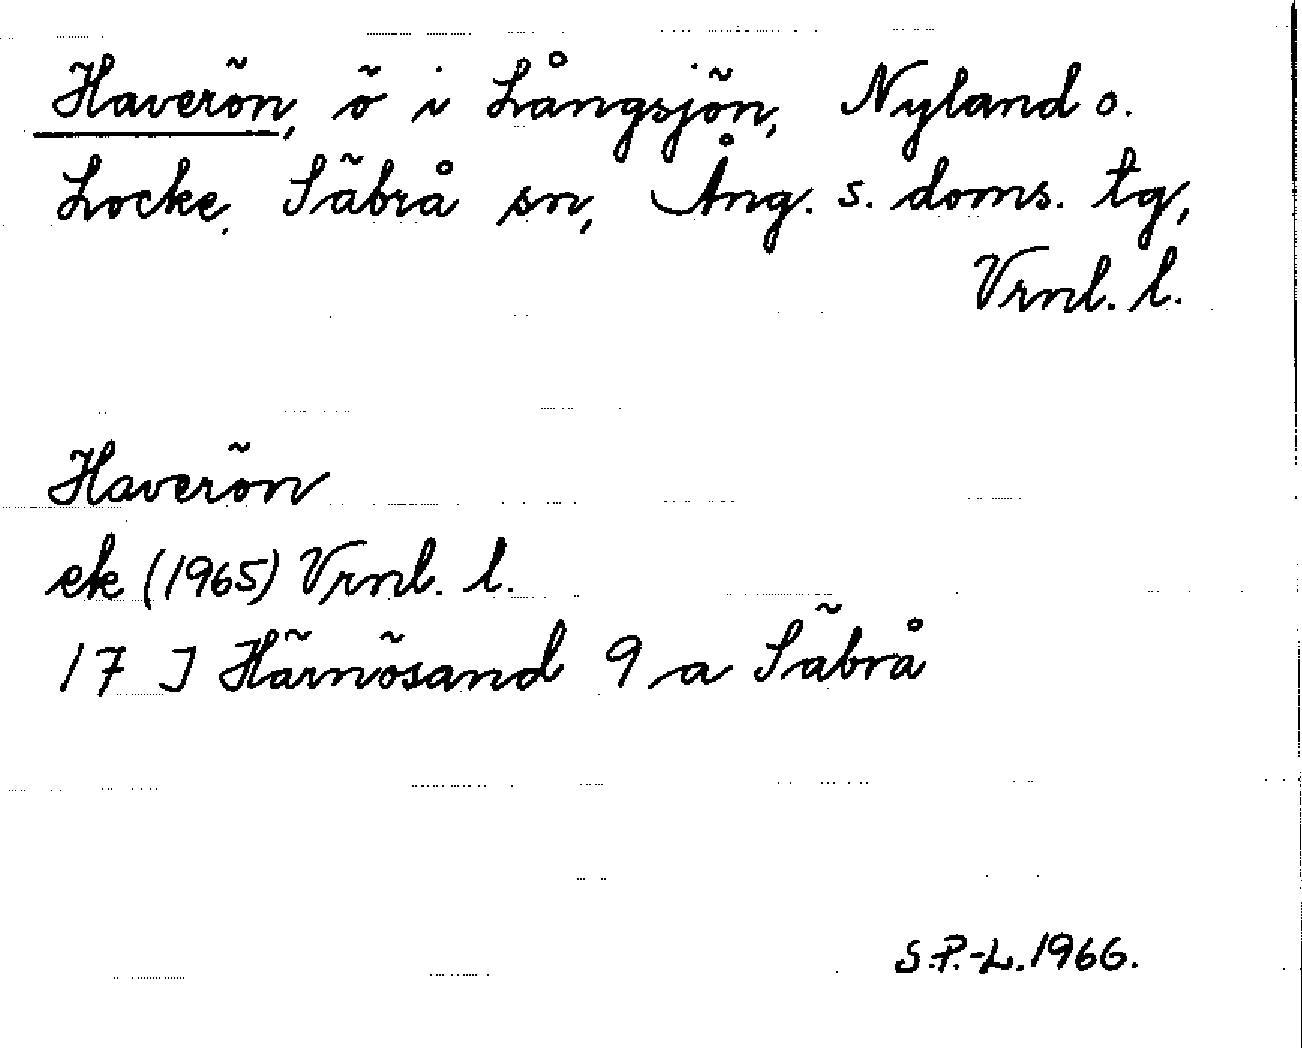 Haverön, ö i Långsjön, Nyland o.
Locke, Säbrå sn, Ång. s. doms. tg,
Vrnl. l.
Haverön
ek (1965) Vrnl. l.
17 J Härnösand 9 a Säbrå
S.P.-L. 1966.